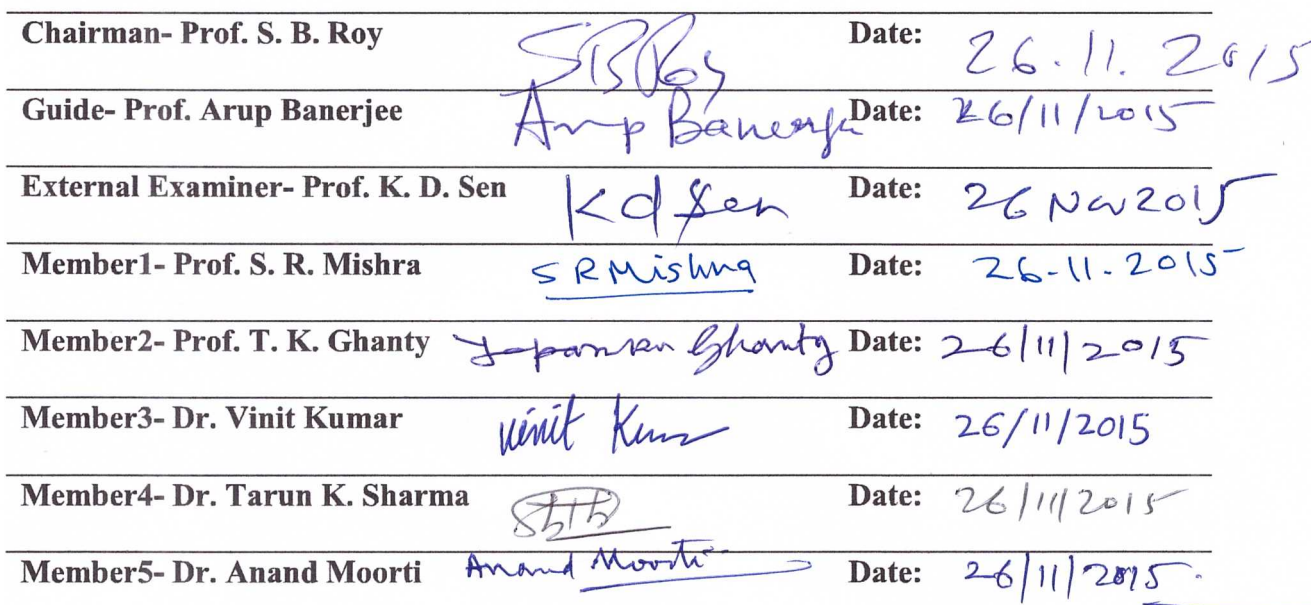 Chairman- Prof. S. B. Roy SBRoy Date: 26.11.2015
Guide- Prof. Arup Banerjee Arup Banerjee Date: 26/11/2015
External Examiner- Prof. K. D. Sen K d Sen Date: 26 Nov 2015
Member1- Prof. S. R. Mishra S R Mishra Date: 26-11-2015
Member2- Prof. T. K. Ghanty Tapan Ghanty Date: 26/11/2015
Member3- Dr. Vinit Kumar Vinit Kumar Date: 26/11/2015
Member4- Dr. Tarun K. Sharma Date: 26/11/2015
Member5- Dr. Anand Moorti Anand Moorti Date: 26/11/2015.